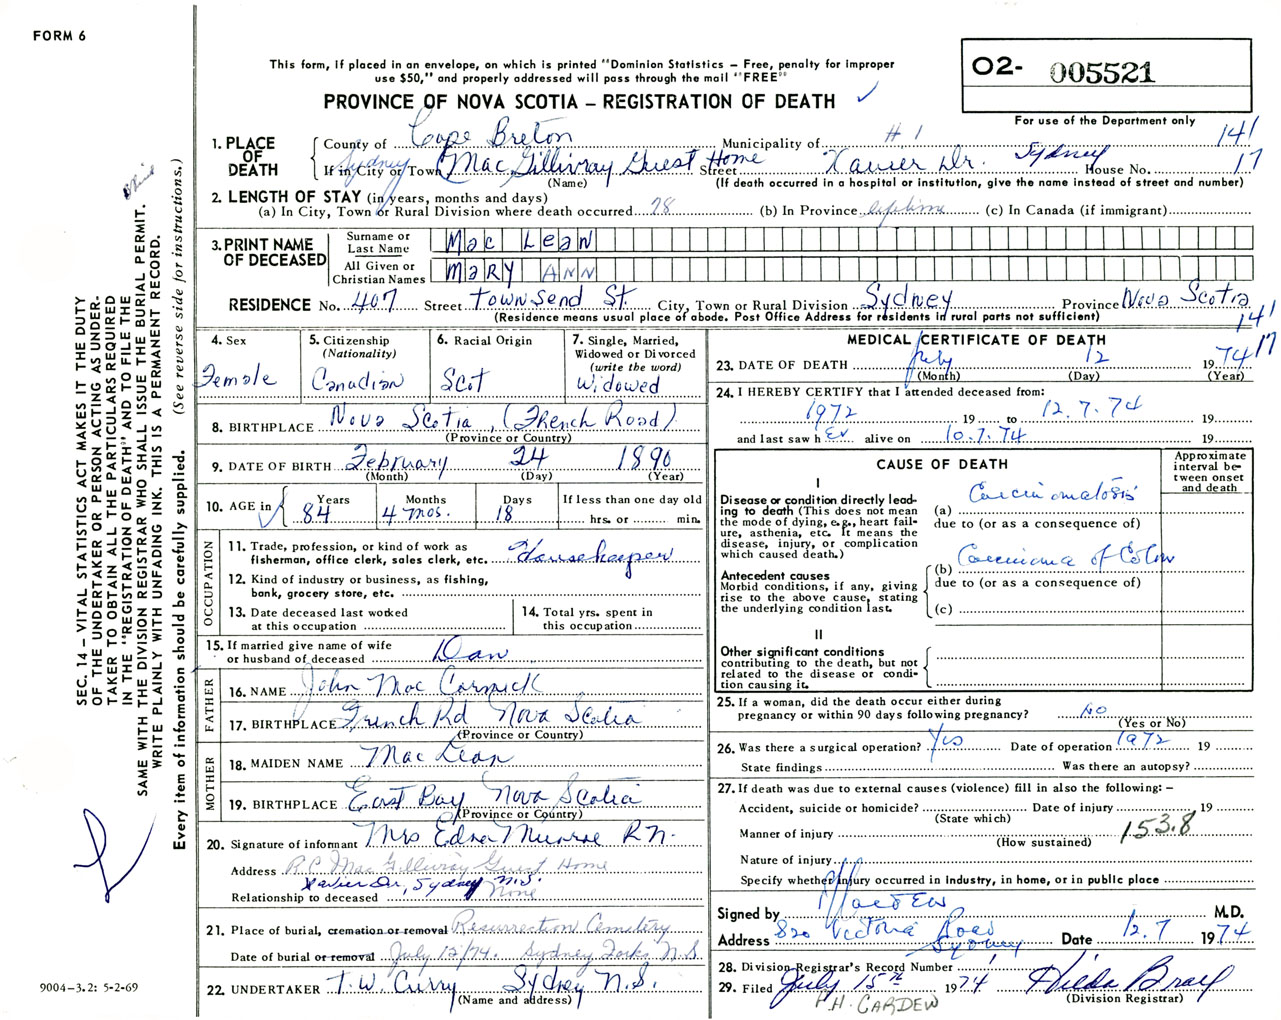 FORM 6
This form, If placed in an envelope, on which is printed "Dominion Statistics – Free, penalty for improper
use $50," and properly addressed will pass through the mail "FREE"
O2- 005521
PROVINCE OF NOVA SCOTIA – REGISTRATION OF DEATH ✓
For use of the Department only
141
17
1. PLACE OF DEATH
County of Cape Breton Municipality of #1
If in City or Town Sydney MacGillivray Guest Home Street Xavier Dr. Sydney House No.
(Name) (If death occurred in a hospital or institution, give the name instead of street and number)
2. LENGTH OF STAY (in years, months and days)
(a) In City, Town or Rural Division where death occurred 78 (b) In Province lifetime (c) In Canada (if immigrant)
3. PRINT NAME OF DECEASED
Surname or Last Name Mac Lean
All Given or Christian Names MARY ANN
RESIDENCE No. 407 Street Townsend St. City, Town or Rural Division Sydney Province Nova Scotia
(Residence means usual place of abode. Post Office Address for residents in rural parts not sufficient)
141
17
4. Sex Female
5. Citizenship (Nationality) Canadian
6. Racial Origin Scot
7. Single, Married, Widowed or Divorced (write the word) Widowed
8. BIRTHPLACE Nova Scotia, (French Road)
(Province or Country)
9. DATE OF BIRTH February 24 1890
(Month) (Day) (Year)
10. AGE in Years 84 Months 4 mos. Days 18 If less than one day old hrs. or min.
OCCUPATION
11. Trade, profession, or kind of work as fisherman, office clerk, sales clerk, etc. Housekeeper
12. Kind of industry or business, as fishing, bank, grocery store, etc.
13. Date deceased last worked at this occupation
14. Total yrs. spent in this occupation
15. If married give name of wife or husband of deceased Dan
FATHER
16. NAME John Mac Cormick
17. BIRTHPLACE French Rd Nova Scotia
(Province or Country)
MOTHER
18. MAIDEN NAME MacLean
19. BIRTHPLACE East Bay Nova Scotia
(Province or Country)
20. Signature of informant Mrs Edna Munroe RN.
Address R.C. MacGillivray Guest Home
Xavier Dr, Sydney N.S.
Relationship to deceased None
21. Place of burial, cremation or removal Resurrection Cemetery
Date of burial or removal July 12/74. Sydney Forks N.S.
22. UNDERTAKER T.W. Curry Sydney N.S.
(Name and address)
MEDICAL CERTIFICATE OF DEATH
23. DATE OF DEATH July 12 1974
(Month) (Day) (Year)
24. I HEREBY CERTIFY that I attended deceased from:
1972 19 to 12.7.74 19
and last saw her alive on 10.7.74 19
CAUSE OF DEATH
Approximate interval between onset and death
I
Disease or condition directly leading to death (This does not mean the mode of dying, e.g., heart failure, asthenia, etc. It means the disease, injury, or complication which caused death.)
(a) Carcinomatosis
due to (or as a consequence of)
Antecedent causes
Morbid conditions, if any, giving rise to the above cause, stating the underlying condition last.
(b) Carcinoma of Colon
due to (or as a consequence of)
(c)
II
Other significant conditions
contributing to the death, but not related to the disease or condition causing it.
25. If a woman, did the death occur either during pregnancy or within 90 days following pregnancy? No
(Yes or No)
26. Was there a surgical operation? Yes Date of operation 1972 19
State findings Was there an autopsy?
27. If death was due to external causes (violence) fill in also the following: –
Accident, suicide or homicide? Date of injury 19
(State which)
Manner of injury 153.8
(How sustained)
Nature of injury
Specify whether injury occurred in industry, in home, or in public place
Signed by M.D.
Address 820 Victoria Road Sydney Date 12.7 1974
28. Division Registrar's Record Number
29. Filed July 15th 1974
(Division Registrar)
H. CARDEW
SEC. 14 – VITAL STATISTICS ACT MAKES IT THE DUTY
OF THE UNDERTAKER OR PERSON ACTING AS UNDER-
TAKER TO OBTAIN ALL THE PARTICULARS REQUIRED
IN THE "REGISTRATION OF DEATH" AND TO FILE THE
SAME WITH THE DIVISION REGISTRAR WHO SHALL ISSUE THE BURIAL PERMIT.
WRITE PLAINLY WITH UNFADING INK. THIS IS A PERMANENT RECORD.
Every item of information should be carefully supplied. (See reverse side for instructions,)
9004-3.2: 5-2-69